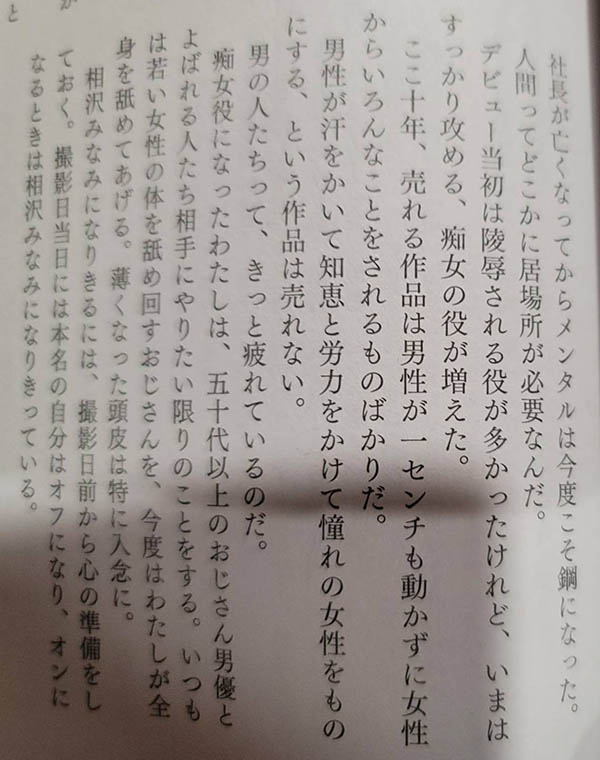 社長が亡くなってからメンタルは今度こそ鋼になった。
人間ってどこかに居場所が必要なんだ。
デビュー当初は陵辱される役が多かったけれど、いまは
すっかり攻める、痴女の役が増えた。
ここ十年、売れる作品は男性が一センチも動かずに女性
からいろんなことをされるものばかりだ。
男性が汗をかいて知恵と労力をかけて憧れの女性をもの
にする、という作品は売れない。
男の人たちって、きっと疲れているのだ。
痴女役になったわたしは、五十代以上のおじさん男優と
よばれる人たち相手にやりたい限りのことをする。いつも
は若い女性の体を舐め回すおじさんを、今度はわたしが全
身を舐めてあげる。薄くなった頭皮は特に入念に。
相沢みなみになりきるには、撮影日前から心の準備をし
ておく。撮影日当日には本名の自分はオフになり、オンに
なるときは相沢みなみになりきっている。
と